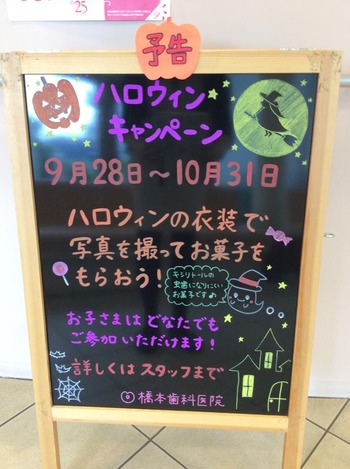 25
予告
ハロウィン
キャンペーン
9月28日～10月31日
ハロウィンの衣装で
写真を撮ってお菓子を
もらおう!
キシリトールの
虫歯になりにくい
お菓子です♪
お子さまはどなたでも
ご参加いただけます!
詳しくはスタッフまで
橋本歯科医院